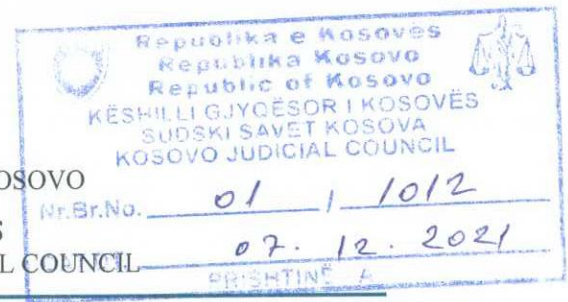 Republika e Kosovës
Republika Kosovo
Republic of Kosovo
KËSHILLI GJYQËSOR I KOSOVËS
SUDSKI SAVET KOSOVA
KOSOVO JUDICIAL COUNCIL
OSOVO
Nr.Br.No. 01 / 1012
S
07. 12. 2021
L COUNCIL
PRISHTINË A